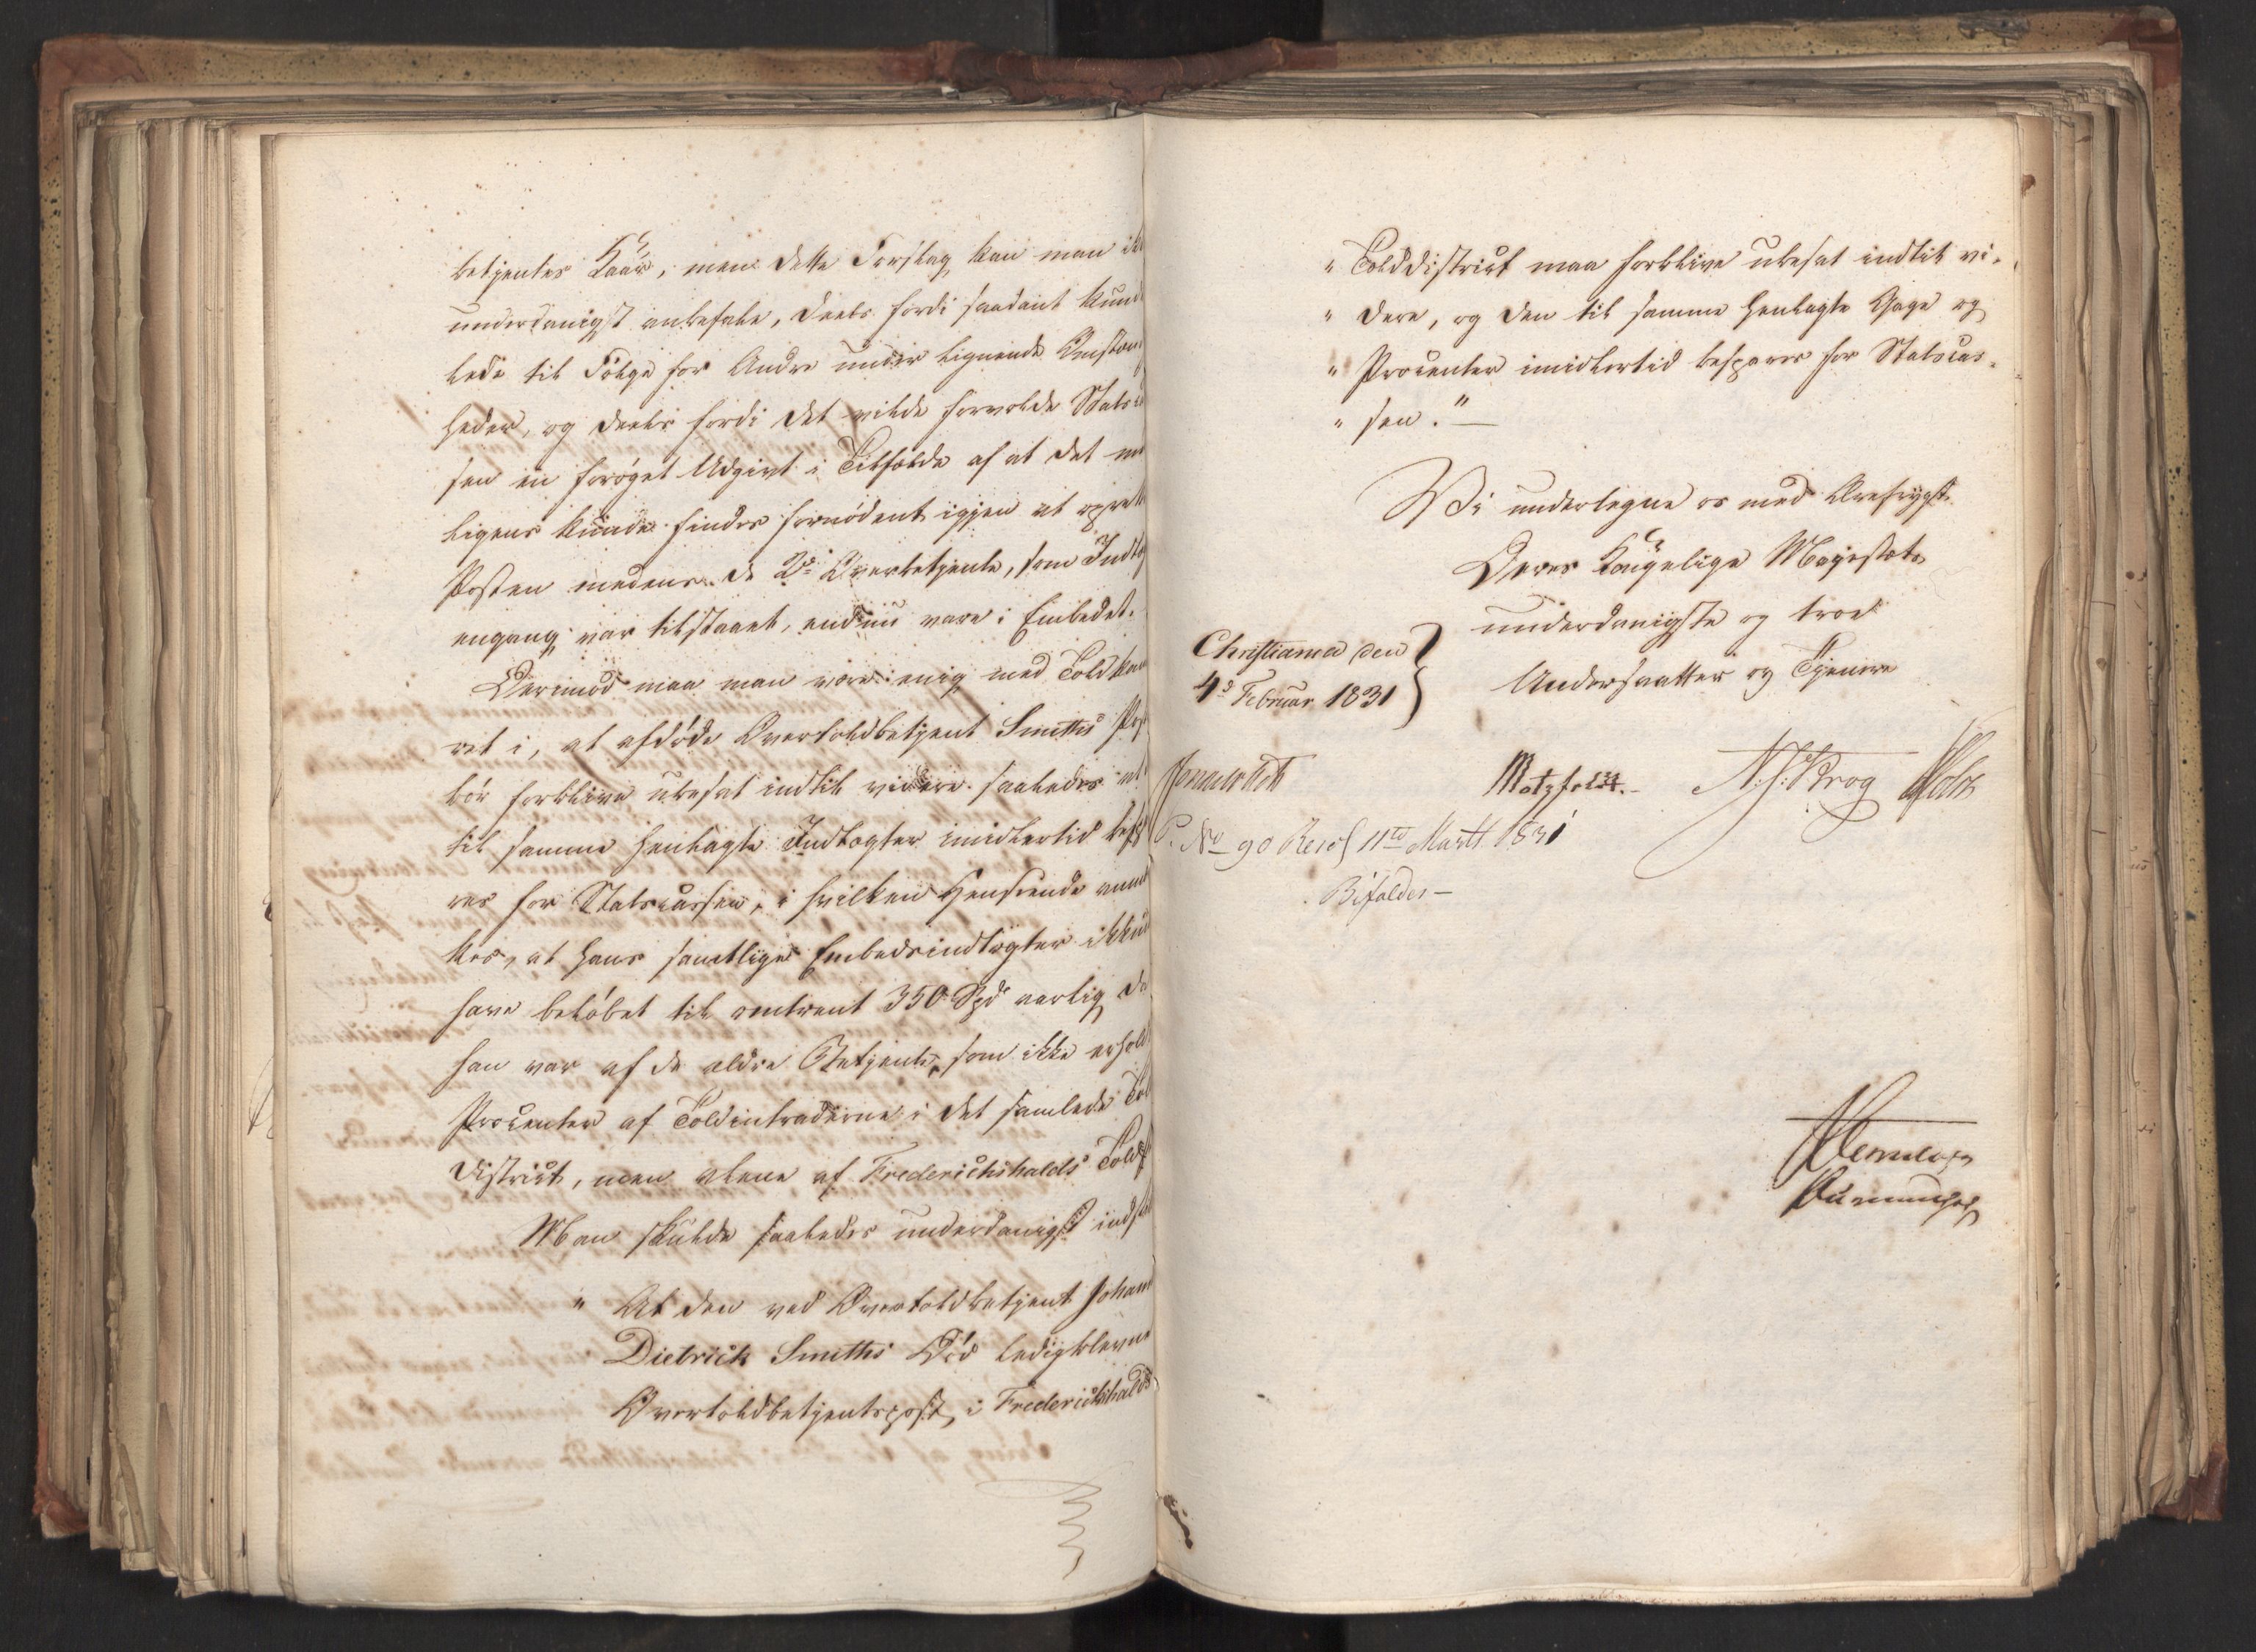 betjentes Kaar, men dette Forslag kan man ik
underdanigst anbefale, deels fordi saadant kund
lede til Følge for Andre under lignende Omstæn
heder, og deels fordi det vilde forvolde Statsca
sen en forøget Udgivt i Tilfælde af at det mu
ligens kunde findes fornødent igjen at oprett
Posten medens de 2de Overbetjente, som Indtæg
engang var tilstaaet, endnu vare i Embedet.
Derimod maa man være enig med Toldkam
ret i, at afdøde Overtoldbetjent Smiths Pos
bør forblive ubesat indtil videre saaledes at
til samme henlagte Indtægter imidlertid besp
res for Statscassen, i hvilken Henseende anmæ
kes, at hans samtlige Embedsindtægter ikkun
have beløbet til omtrent 350 Spd aarlig, da
han var af de ældre Betjente, som ikke erholdt
Procenter af Toldintraderne i det samlede Told
district, men alene af Frederichshalds Tolds
Man skulde saaledes underdanigst indstil
" At den ved Overtoldbetjent Johan
Dietrick Smiths Død ledigblevne
Overtoldbetjentspost i Frederichshalds
" Tolddistrict maa forblive ubesat indtil vi-
" dere, og den til samme henlagte Gage og
" Procenter imidlertid bespares for Statscas-
" sen." —
Vi undertegne os med Ærefrygt
Deres Kongelige Majestæts
underdanigste og troe
Undersaatter og Tjenere
Christiania den
4de Februar 1831
Motzfeldt. N. J. Krog Holst
P. No 90 Resol 11te Martt 1831
Bifaldes —